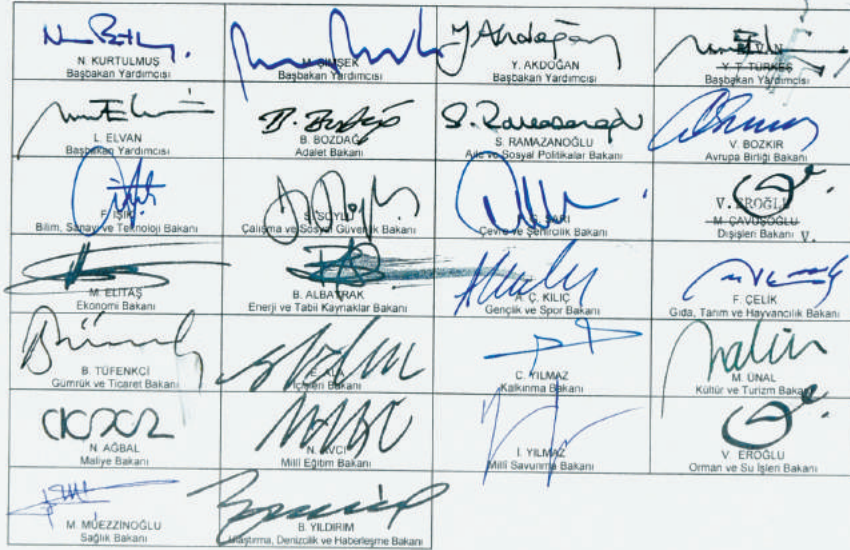 N. KURTULMUŞ
Başbakan Yardımcısı
M. ŞİMŞEK
Başbakan Yardımcısı
Y. AKDOĞAN
Başbakan Yardımcısı
ELVAN
Y. T. TÜRKEŞ
Başbakan Yardımcısı
L. ELVAN
Başbakan Yardımcısı
B. BOZDAĞ
Adalet Bakanı
S. RAMAZANOĞLU
Aile ve Sosyal Politikalar Bakanı
V. BOZKIR
Avrupa Birliği Bakanı
F. IŞIK
Bilim, Sanayi ve Teknoloji Bakanı
S. SOYLU
Çalışma ve Sosyal Güvenlik Bakanı
SARI
Çevre ve Şehircilik Bakanı
V. EROĞLU
M. ÇAVUŞOĞLU
Dışişleri Bakanı V.
M. ELİTAŞ
Ekonomi Bakanı
B. ALBAYRAK
Enerji ve Tabii Kaynaklar Bakanı
A. Ç. KILIÇ
Gençlik ve Spor Bakanı
F. ÇELİK
Gıda, Tarım ve Hayvancılık Bakanı
B. TÜFENKCİ
Gümrük ve Ticaret Bakanı
E. ALA
İçişleri Bakanı
C. YILMAZ
Kalkınma Bakanı
M. ÜNAL
Kültür ve Turizm Bakanı
N. AĞBAL
Maliye Bakanı
N. AVCI
Milli Eğitim Bakanı
İ. YILMAZ
Milli Savunma Bakanı
V. EROĞLU
Orman ve Su İşleri Bakanı
M. MÜEZZİNOĞLU
Sağlık Bakanı
B. YILDIRIM
Ulaştırma, Denizcilik ve Haberleşme Bakanı